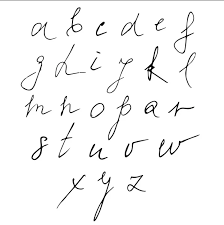 a b c d e f
g h i y k l
m n o p a r
s t u v w
x y z